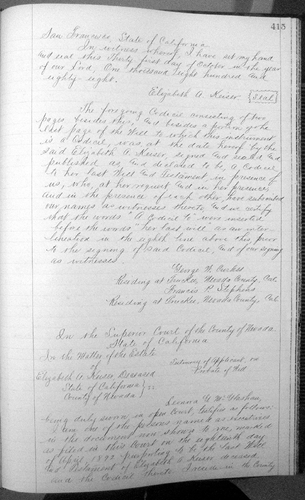 413
San Francisco, State of California
In witness whereof I have set my hand
and seal this thirty first day of October in the year
of our Lord, One thousand Eight hundred and
eighty eight.
Elizabeth A. Keiser {Seal}
The foregoing Codicil consisting of two
pages besides this, and besides a part on the
last page of the Will to which this instrument
is a Codicil, was, at the date hereof by the
said Elizabeth A. Keiser signed and sealed and
published as, and declared to be a Codicil
to her last Will and Testament in presence of
us, who, at her request and in her presence,
and in the presence of each other, have subscribed
our names as witnesses thereto, and we certify
that the words "A Codicil to" were inserted
before the words "her last will" as an inter-
lineation in the eighth line above this, prior
to the signing of said Codicil, and of our signing
as witnesses.
George W.
Residing at Truckee, Nevada County, Cal.
Francis P. Stephens
Residing at Truckee, Nevada County, Cal.
In the Superior Court of the County of Nevada
State of California
In the Matter of the Estate
of
Elizabeth A. Keiser Deceased
Testimony of on
Probate of Will
State of California }
County of Nevada } ss
G. W.
being duly sworn in open Court, testifies as follows:
I am one of the persons named as
in the document now shown to me, marked
as filed in this Court on the eighteenth day
of, purporting to be the last Will
and Testament of Elizabeth A. Keiser deceased
and the Codicil thereto I reside in the County